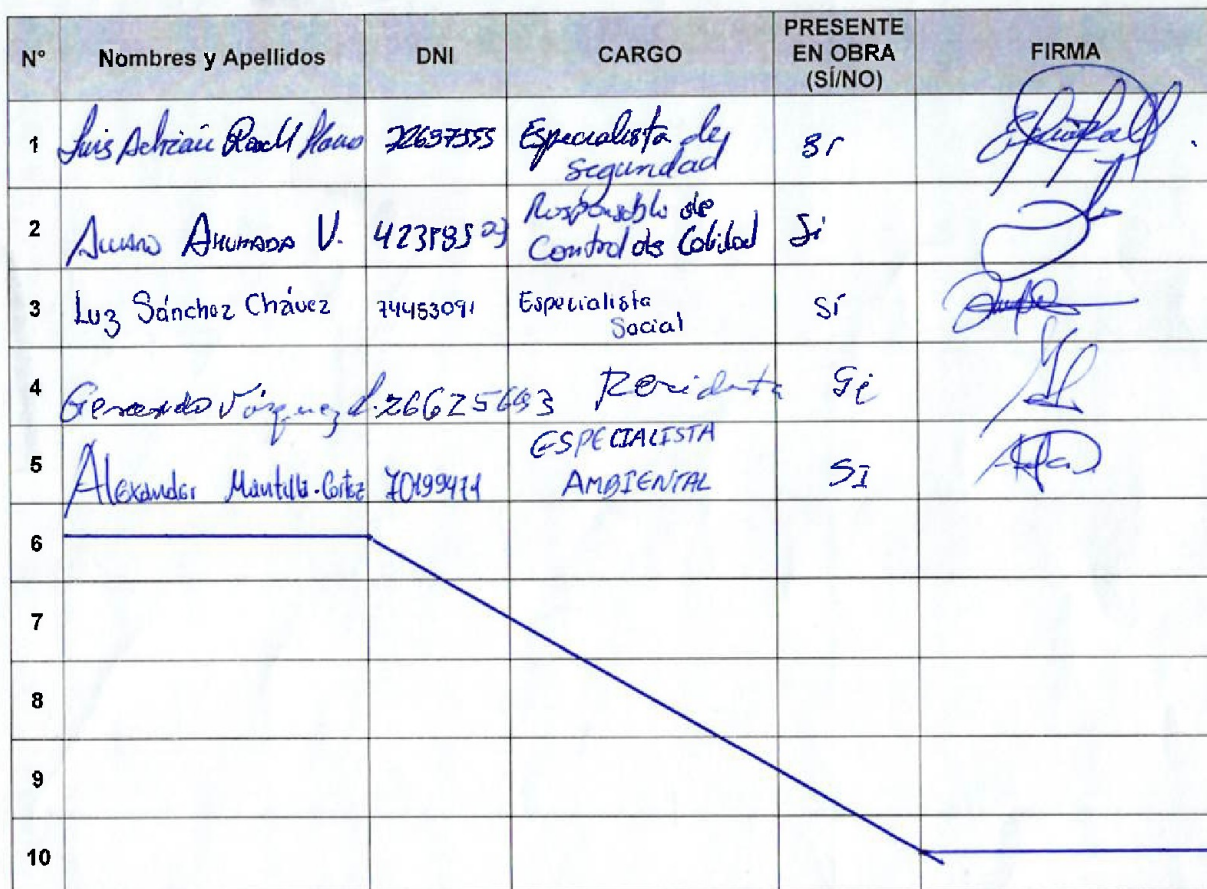 N° Nombres y Apellidos DNI CARGO PRESENTE EN OBRA (SÍ/NO) FIRMA
1 Luis Adrián 72637555 Especialista de seguridad Sí
2 AHUMADA V. Responsable de Control de Calidad Si
3 Luz Sánchez Chávez 74453091 Especialista Social Sí
4 Gerardo Vásquez Residente Si
5 Alexander Mantilla Cortez ESPECIALISTA AMBIENTAL SI
6
7
8
9
10